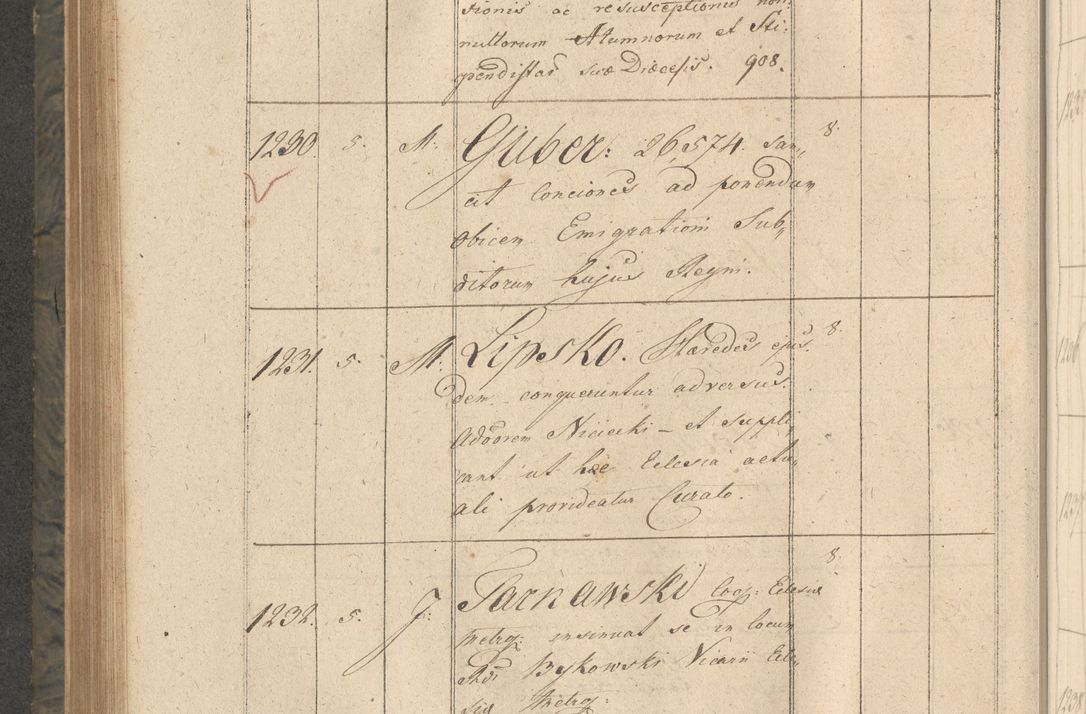 tionis ac resusceptionis non
nullorum Alumnorum et Sti:
pendistar suae Diecesis. 908.
1230. 5. M. Guber: 26,574. San„ 8.
cit Conciones ad ponendum
obicem Emigrationi Sub„
ditorum hujus Regni.
1231. 5. M. Lipsko. Haredes ejus. 8.
dem conqueruntur adversus
Addorem Niciecki - et suppli
cant ut hae Eclesia actu„
ali provideatur Curato.
1232. 5. J. Tarnawski Coop: Eclesiæ 8.
metrop: insinuat se in locum
Bykowski Vicarii Ecle„
siæ metrop: